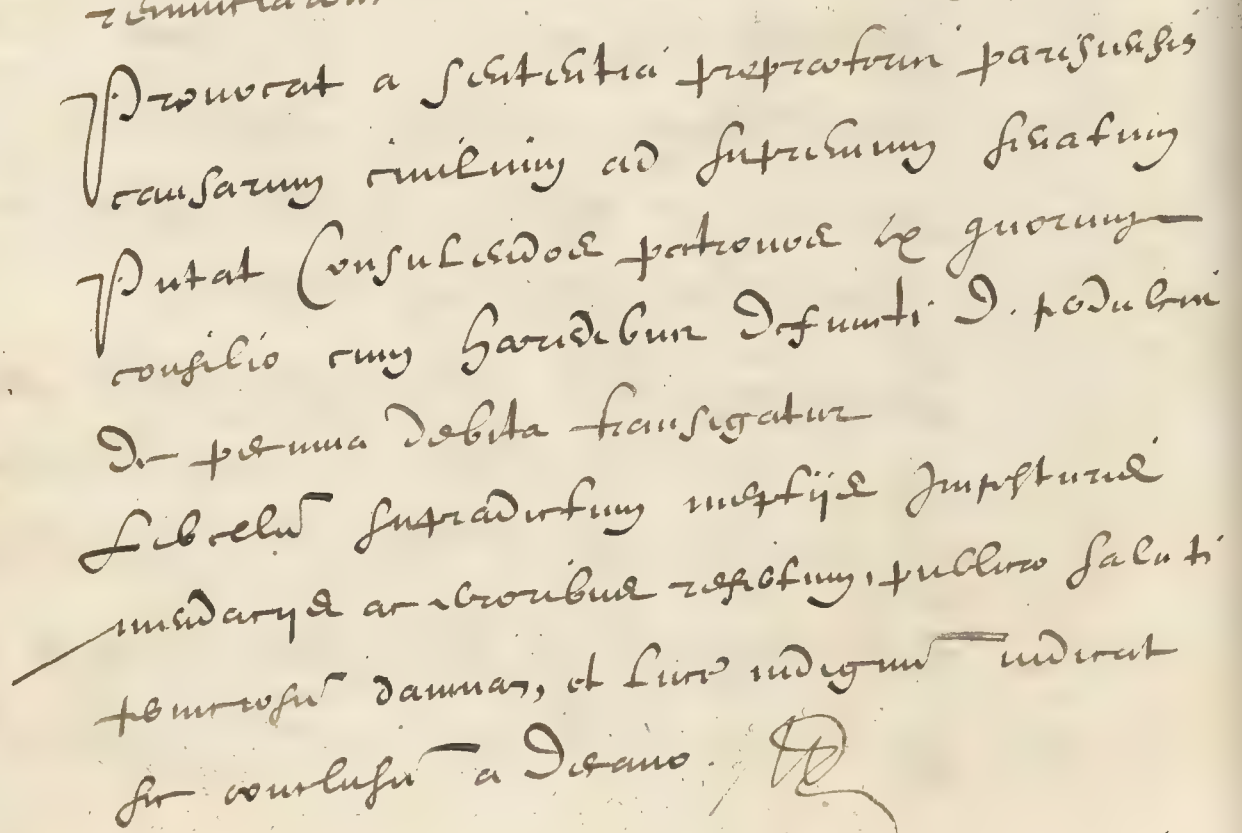 Provocat a sententia propraetoris parisiensis
causarum civilium ad supremum senatum
Putat Consulendos patronos ex quorum
consilio cum haeredibus defuncti D.
De pecunia debita transigatur
Libellū supradictum ineptijs Imposturis
mendacijs ac erroribus refertum, publico saluti
perniciosū damnat, et luce indignū iudicat
sic conclusū a Decano.